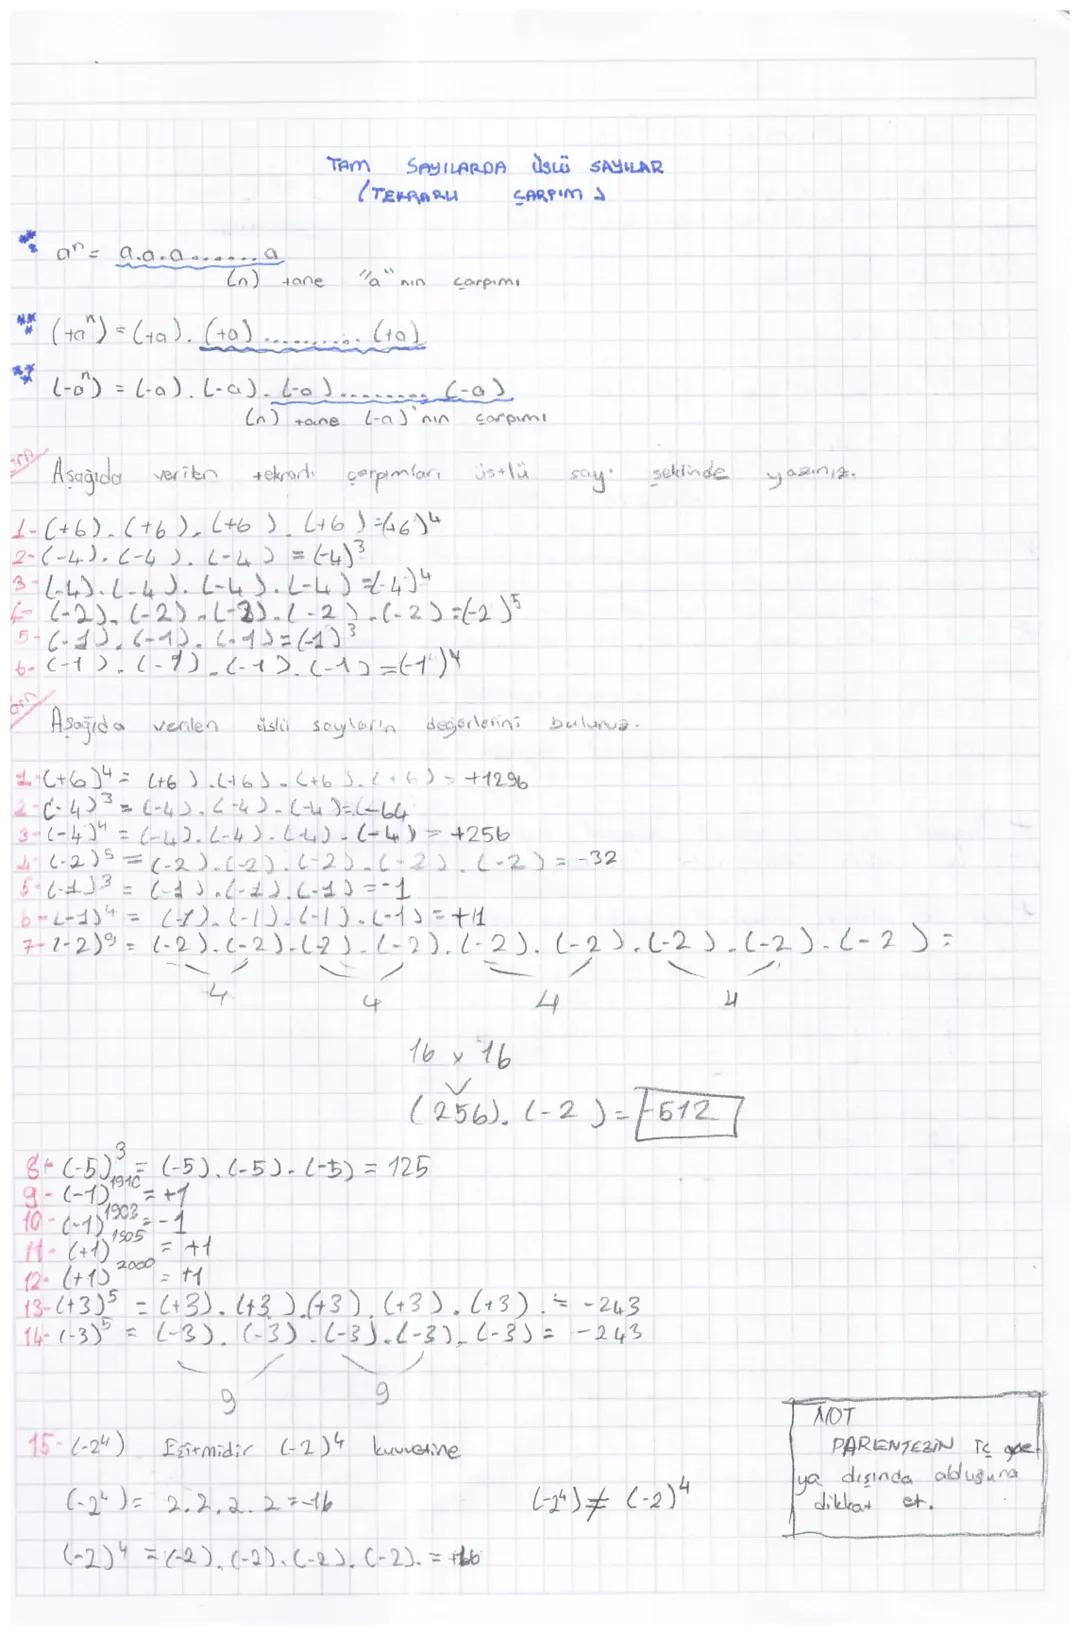 TAM SAYILARDA ÜSLÜ SAYILAR
(TEKRARLI ÇARPIM)
aⁿ = a.a.a.......a
(n) tane "a" nın çarpımı
(+aⁿ) = (+a). (+a) ........... (+a)
(-aⁿ) = (-a). (-a). (-a)......... (-a)
(n) tane (-a)'nın çarpımı
örn
Aşağıda verilen tekrarlı çarpımları üstlü sayı şeklinde yazınız.
1- (+6). (+6). (+6). (+6) = (+6)⁴
2- (-4). (-4). (-4) = (-4)³
3- (-4). (-4). (-4). (-4) = (-4)⁴
4- (-2). (-2). (-2). (-2). (-2) = (-2)⁵
5- (-1). (-1). (-1) = (-1)³
6- (-1). (-1). (-1). (-1) = (-1)⁴
örn
Aşağıda verilen üslü sayıların değerlerini bulunuz.
1- (+6)⁴ = (+6).(+6).(+6).(+6) = +1296
2- (-4)³ = (-4). (-4). (-4) = (-64
3- (-4)⁴ = (-4). (-4). (-4). (-4) = +256
4- (-2)⁵ = (-2). (-2). (-2). (-2). (-2) = -32
5- (-1)³ = (-1). (-1). (-1) = -1
6- (-1)⁴ = (-1). (-1). (-1). (-1) = +1
7- (-2)⁹ = (-2). (-2). (-2). (-2). (-2). (-2). (-2). (-2). (-2) =
4 4 4 4
16 x 16
(256). (-2) = -512
8- (-5)³ = (-5). (-5). (-5) = 125
9- (-1)¹⁹¹⁰ = +1
10- (-1)¹⁹⁰³ = -1
11- (+1)¹⁹⁰⁵ = +1
12- (+1)²⁰⁰⁰ = +1
13- (+3)⁵ = (+3). (+3).(+3). (+3). (+3). = -243
14- (-3)⁵ = (-3). (-3). (-3). (-3). (-3) = -243
9 9
15- (-2⁴) Eşitmidir (-2)⁴ kuvvetine
(-2⁴) = 2.2.2.2 = -16 (-2⁴) ≠ (-2)⁴
(-2)⁴ = (-2). (-2). (-2). (-2). = +16
NOT
PARENTEZİN İÇ
ya dışında olduğuna
dikkat et.